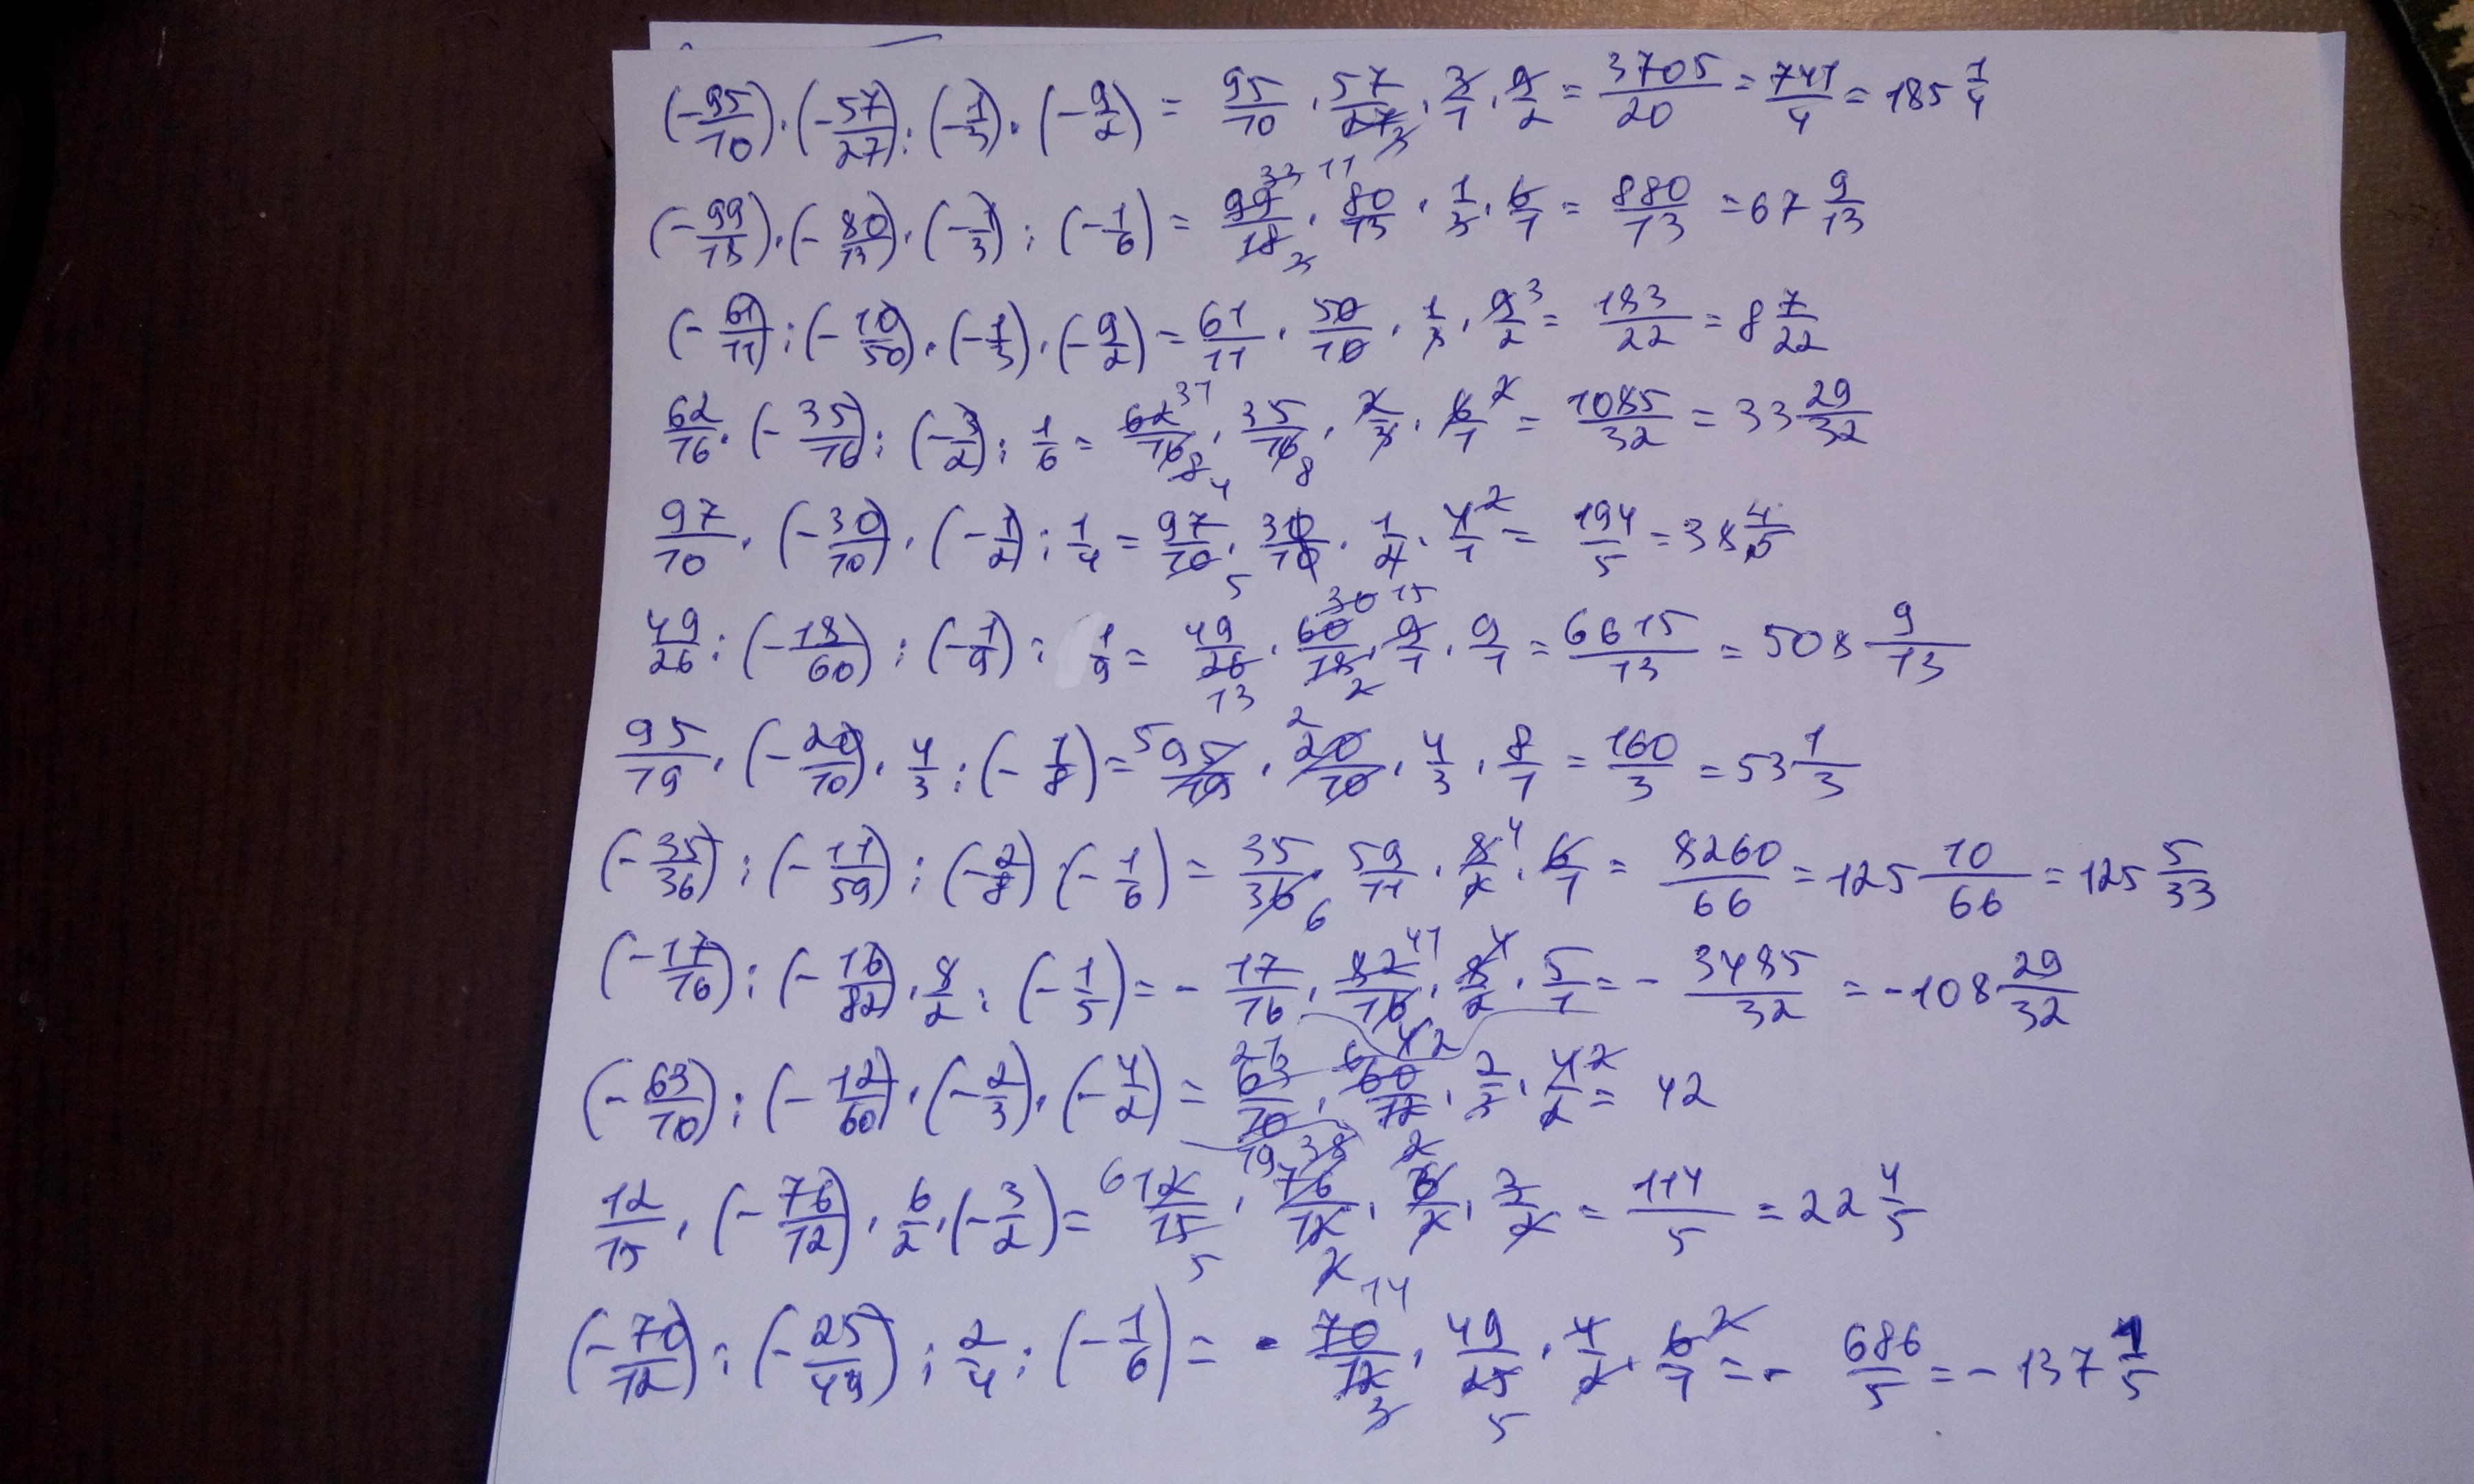 (-95/10)·(-57/27):(-1/3)·(-9/2) = 95/10 · 57/27 3 · 3/1 · 9/2 = 3705/20 = 741/4 = 185 1/4
(-99/18)·(-80/13)·(-1/3):(-1/6) = 99 33 11/18 2 · 80/13 · 1/3 · 6/1 = 880/13 = 67 9/13
(-61/11):(-10/50)·(-1/3)·(-9/2) = 61/11 · 50/10 · 1/3 · 9 3/2 = 183/22 = 8 7/22
62/16·(-35/16):(-3/2):1/6 = 62 31/16 8 4 · 35/16 8 · 2/3 · 6 2/1 = 1085/32 = 33 29/32
97/10·(-30/10)·(-1/2):1/4 = 97/10 5 · 30/10 · 1/2 · 4 2/1 = 194/5 = 38 4/5
49/26:(-18/60):(-1/9):1/9 = 49/26 13 · 60 30 15/18 2 · 9/1 · 9/1 = 6615/13 = 508 9/13
95/19·(-20/10)·4/3:(-1/8) = 5 95/19 · 2 20/10 · 4/3 · 8/1 = 160/3 = 53 1/3
(-35/36):(-11/59):(-2/8):(-1/6) = 35/36 6 · 59/11 · 8 4/2 · 6/1 = 8260/66 = 125 10/66 = 125 5/33
(-17/16):(-16/82)·8/2:(-1/5) = - 17/16 · 82 41/16 · 8 4/2 · 5/1 = - 3485/32 = -108 29/32
(-63/10):(-12/60)·(-2/3)·(-4/2) = 21 63/10 · 6 60/12 2 · 2/3 · 4 2/2 = 42
12/15·(-76/12)·6/2·(-3/2) = 6 12/15 5 · 19 38 76/12 2 · 2 6/2 · 3/2 = 114/5 = 22 4/5
(-70/12):(-25/49):2/4:(-1/6) = - 70 14/12 3 · 49/25 5 · 4/2 · 6 2/1 = - 686/5 = - 137 1/5